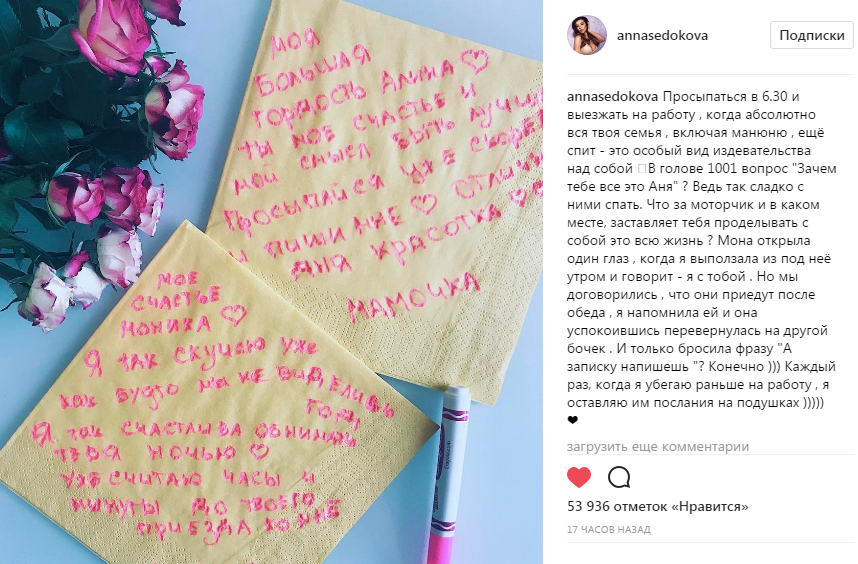 моя
большая
гордость Алина ♡
ты мое счастье и
мой смысл быть лучше
Просыпайся уже скорей
и пиши мне ♡ отличн
дня красотка ♡
мамочка
мое
счастье
Моника ♡
Я так скучаю уже
как будто мы не виделись
году
Я так счастлива обнимать
тебя ночью ♡
уже считаю часы и
минуты до твоего
приезда ко мне
annasedokova
Подписки
annasedokova Просыпаться в 6.30 и
выезжать на работу , когда абсолютно
вся твоя семья , включая манюню , ещё
спит - это особый вид издевательства
над собой В голове 1001 вопрос "Зачем
тебе все это Аня" ? Ведь так сладко с
ними спать. Что за моторчик и в каком
месте, заставляет тебя проделывать с
собой это всю жизнь ? Мона открыла
один глаз , когда я выползала из под неё
утром и говорит - я с тобой . Но мы
договорились , что они приедут после
обеда , я напомнила ей и она
успокоившись перевернулась на другой
бочек . И только бросила фразу "А
записку напишешь "? Конечно ))) Каждый
раз, когда я убегаю раньше на работу , я
оставляю им послания на подушках )))))
❤
загрузить еще комментарии
53 936 отметок «Нравится»
17 ЧАСОВ НАЗАД